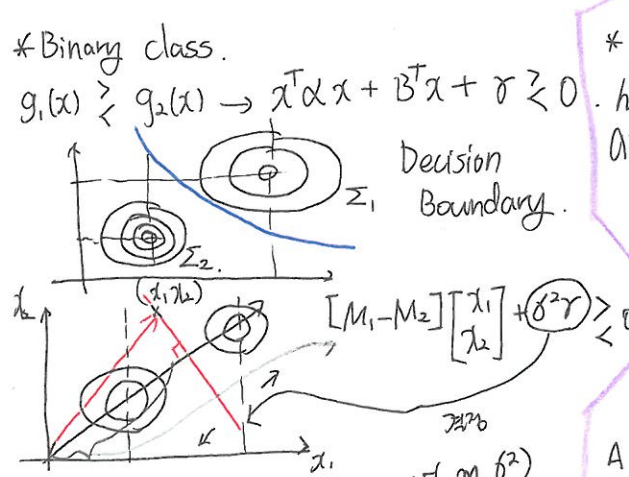 * Binary class.
*
g₁(x) ≷ g₂(x) → xᵀαx + Bᵀx + γ ≷ 0.
h
a
Decision
Boundary.
Σ₁
Σ₂
(x₁x₂)
x₂
[M₁-M₂][x₁ x₂] + σ²γ ≷
x₁
σ²)
A